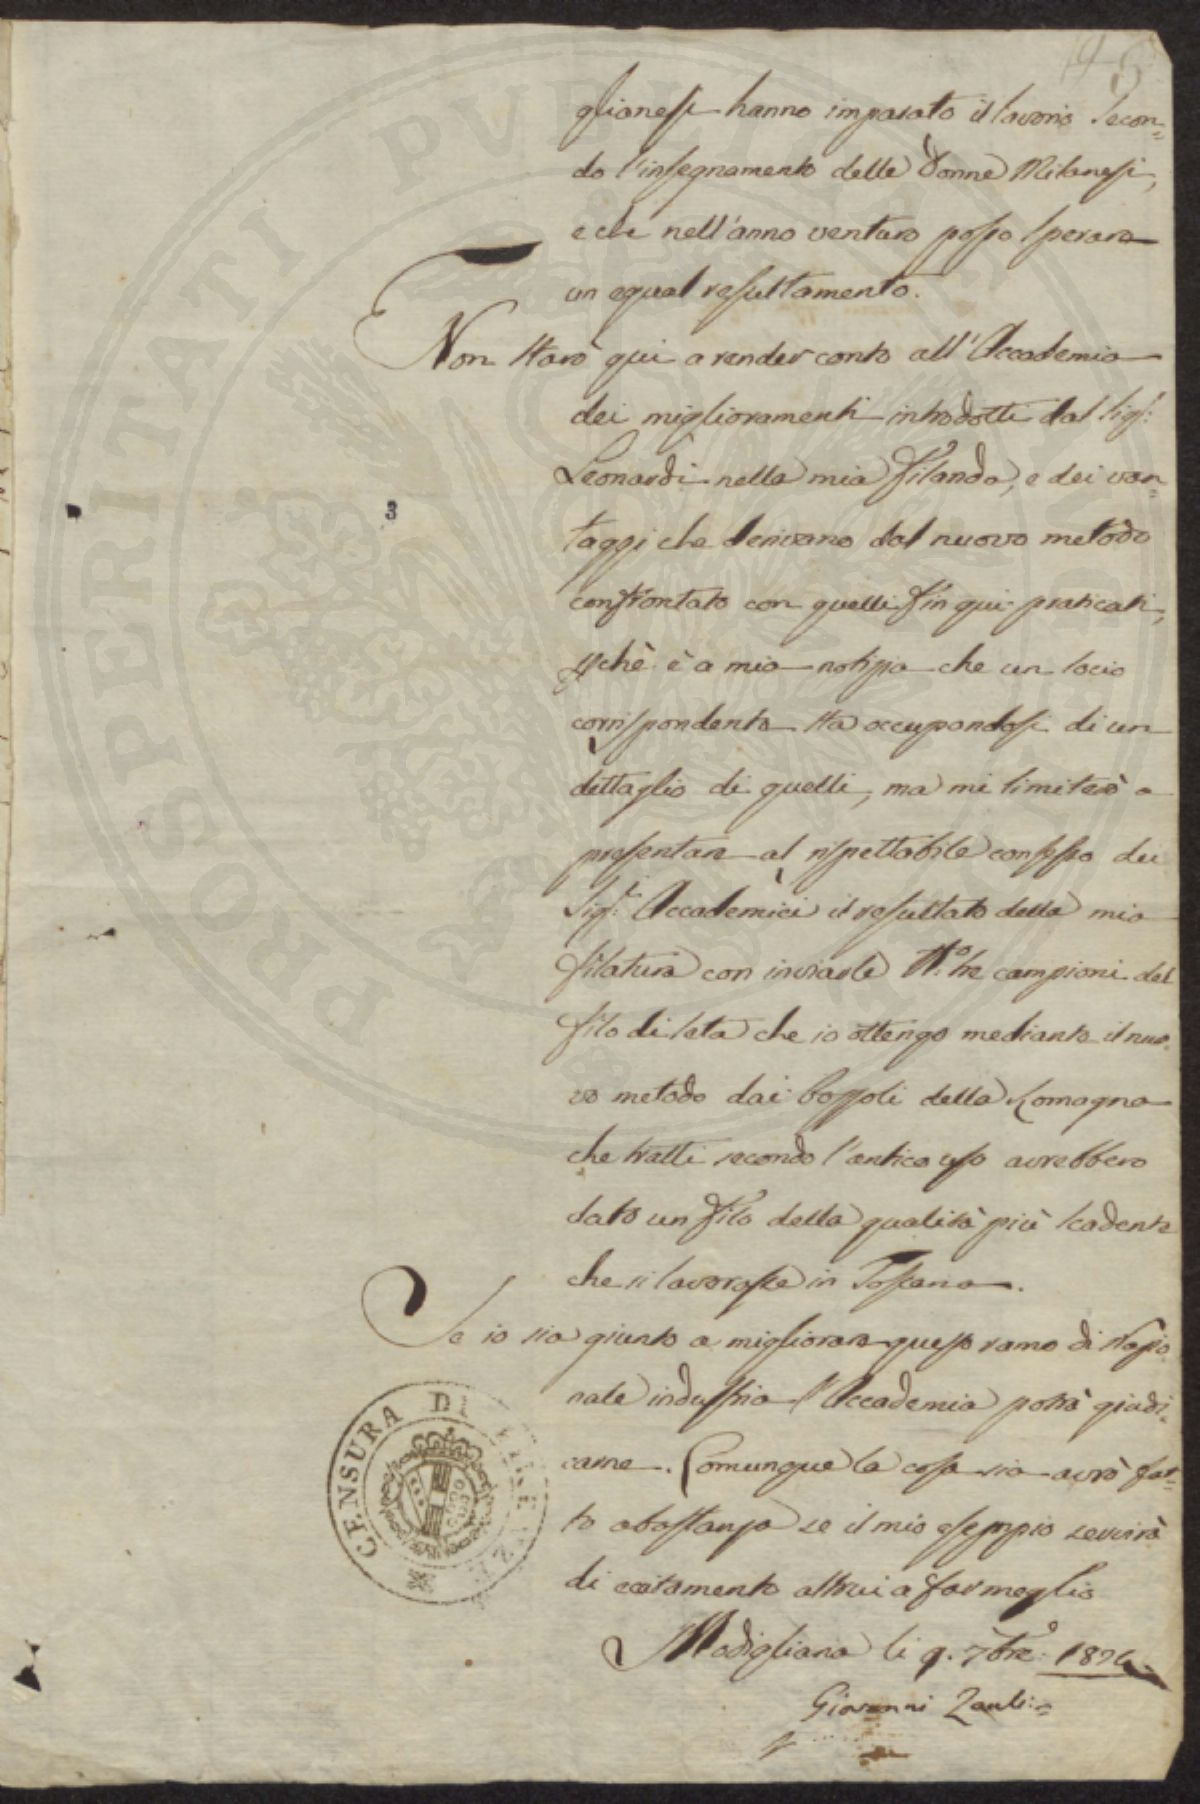 glianesi hanno imparato il lavorio secon=
do l'insegnamento delle Donne Milanesi,
e che nell'anno venturo posso sperare
un egual resultamento.
Non starò qui a render conto all'Accademia
dei miglioramenti introdotti dal Sigr:
Leonardi nella mia filanda, e dei van=
taggi che derivano dal nuovo metodo
confrontato con quelli fin qui praticati,
chè è a mia notizia che un socio
corrispondente sta occupandosi di un
dettaglio di quelli, ma mi limiterò a
presentare al rispettabile consesso dei
Sigri: Accademici il resultato della mia
filatura con inviarle No. tre campioni del
filo di seta che io ottengo mediante il nuo=
vo metodo dai bozzoli della Romagna
che tratti secondo l'antico uso avrebbero
dato un filo della qualità più scadente
che si lavorasse in Toscana.
Se io sia giunto a migliorare questo ramo di Nazio
nale industria l'Accademia potrà giudi=
carne. Comunque la cosa sia avrò fat=
to abbastanza se il mio esempio servirà
di eccitamento altrui a far meglio
Modigliana li 9. 7bre: 1826
Giovanni Zauli=
3
CENSURA DI FIRENZE
PROSPERITATI PUBLICAE